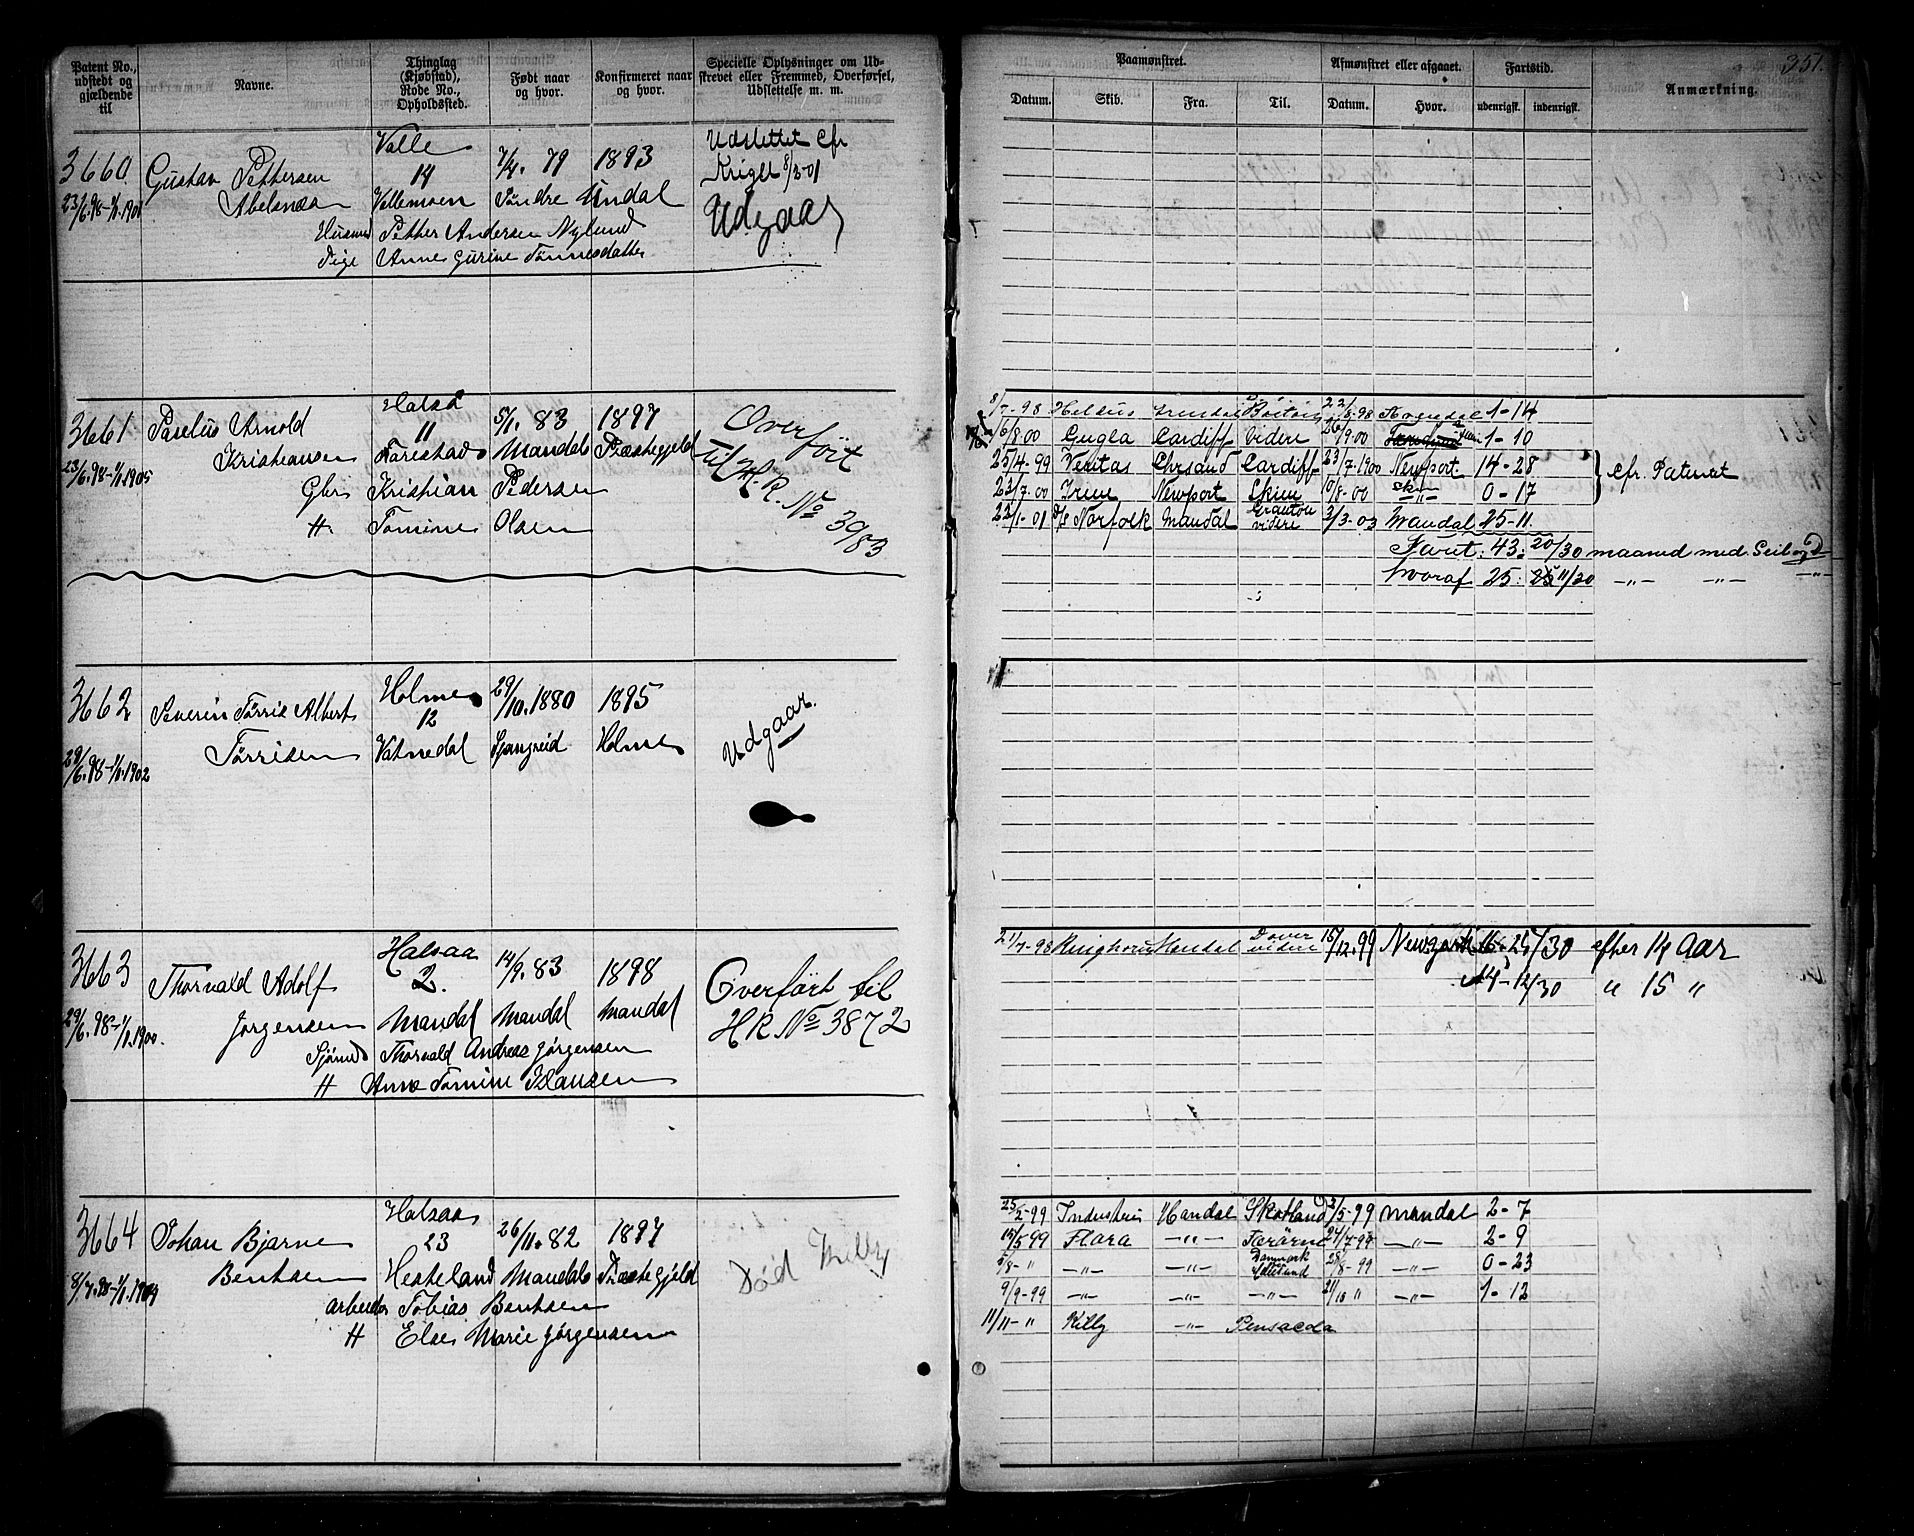 Patent No., udstedt og gjældende til
Navne.
Thinglag (Kjøbstad), Rode No., Opholdssted.
Født naar og hvor.
Konfirmeret naar og hvor.
Specielle Oplysninger om Udskrevet eller Fremmed, Overførsel, Udslettelse m. m.
3660 Gustav Pettersen Valle 7/4. 79 1893 Udslettet cfr
14 Krigld 8/3-01
23/6.98-1/1.1901 Abelsnæs Vallemoen Søndre Undal Udgaar
Husmd Petther Andersen Nylund
Pige Anne Gurine Tønnesdatter
3661 Paselius Arnold Halsaa 5/1. 83 1897 Overført
11
23/6.98-1/1.1905 Kristiansen Farestad Mandals Præstegjeld til H.R. No 3983
Gbr Kristian Pedersen
H Tomine Olsen
3662 Severin Tørris Albert Holme 29/10.1880 1895
12
29/6.98-1/1.1902 Tørrisen Vatnedal Spangreid Holme Udgaar.
3663 Thorvald Adolf Halsaa 14/9.83 1898 Overført til
2.
29/6.98-1/1.1900. Jørgensen Mandal Mandal Mandal HR No 3872
Sjømd Thorvald Andreas Jørgensen
H Anne Tomine Klausen
3664 Johan Bjarne Halsaa 26/11.82 1897
23
8/7.98-1/1.1904 Bentsen Hesteland Mandals Præstegjeld Død Killy
Arbeider Tobias Bentsen
H Else Marie Jørgensen
351.
Paamønstret.
Afmønstret eller afgaaet.
Fartstid.
Anmærkning.
Datum. Skib. Fra. Til. Datum. Hvor. udenrigsk. indenrigsk.
8/7-98 22/8-98 1-14
6/8.00 Gugla Cardiff videre 26/9.00 1-10
25/4-99 Veritas Chrsand Cardiff 23/7.1900 Newport 14-28 cfr. Patentet
23/7.00 Irene Newport Skien 10/8-00 Skn 0-17
22/1-01 D/s Norfolk Mandal Granton videre 2/3-03 Mandal 25-11.
Faret: 43: 20/30 maaned med Seil og D
hvoraf 25: 11/30 -"- -"- -"-
21/7-98 Ringhorn Mandal Dover videre 15/12.99 /30 efter 14 Aar
14-12/30 " 15 "
25/2-99 Industri Mandal Skotland 3/5-99 Mandal 2-7
15/5 99 Flora -"- Færøerne 24/7-99 -"- 2-9
5/8-" -"- -"- Danmark 28/8-99 -"- 0-23
9/9-99 -"- -"- -"- 21/10 " -"- 1-12
11/11-" Killy -"- Pensacola